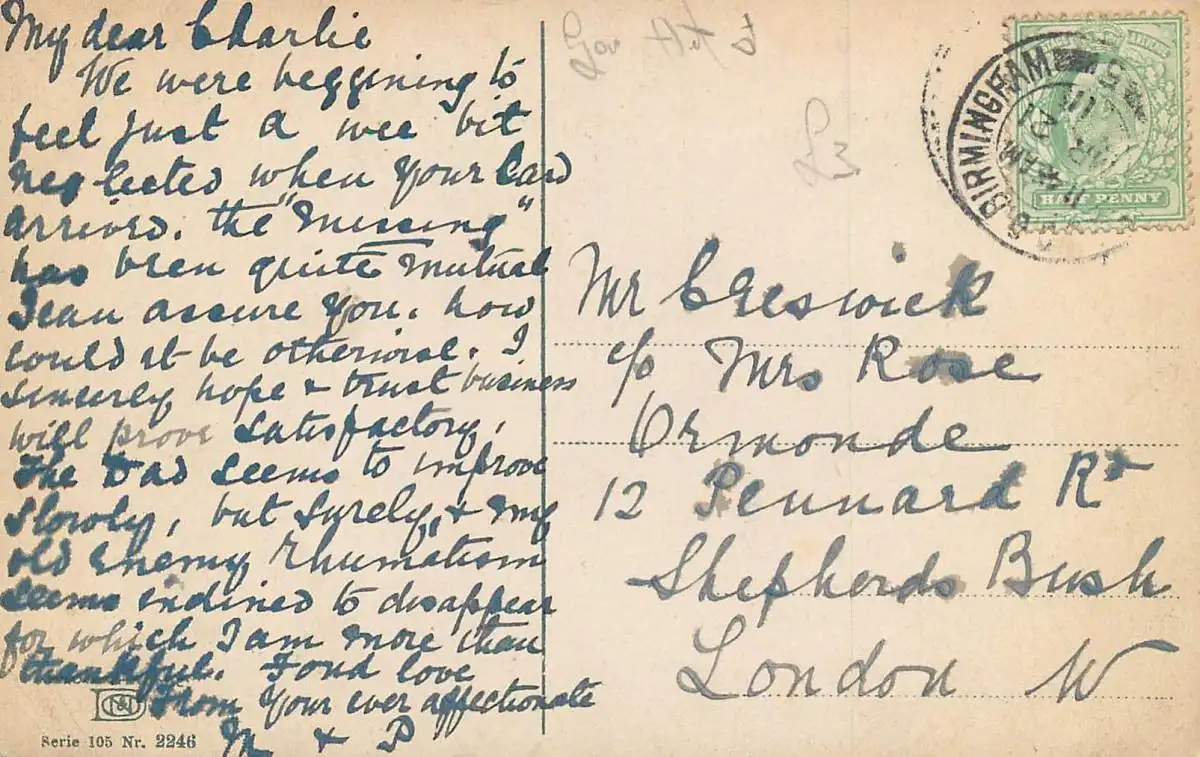 My dear Charlie
We were beggining to
feel just a wee bit
neglected when your Card
arrived. the "missing"
has been quite mutual
I can assure you. how
could it be otherwise. I
sincerely hope & trust business
will prove satisfactory.
The Dad seems to improve
slowly, but surely, & my
old enemy rhumatism
seems inclined to disappear
for which I am more than
thankful. Fond love
From your ever affectionate
M & P
Serie 105 Nr. 2246
£3
BIRMINGHAM
HALF PENNY
Mr Creswick
c/o Mrs Rose
Ormonde
12 Pennard Rd
Shepherds Bush
London W